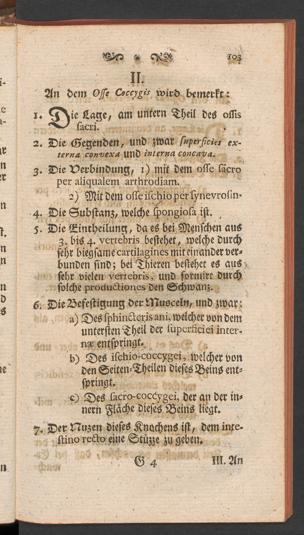 103
II.
An dem Osse Coccygis wird bemerkt:
1. Die Lage, am untern Theil des ossis
sacri.
2. Die Gegenden, und zwar superficies ex-
terna convexa und interna concava.
3. Die Verbindung, 1) mit dem osse sacro
per aliqualem arthrodiam.
2) Mit dem osse ischio per synevrosin.
4. Die Substanz, welche spongiosa ist.
5. Die Eintheilung, da es bei Menschen aus
3. bis 4. vertebris bestehet, welche durch
sehr biegsame cartilagines mit einander ver-
bunden sind; bei Thieren bestehet es aus
sehr vielen vertebris, und formirt durch
solche productiones den Schwanz.
6. Die Befestigung der Musceln, und zwar:
a) Des sphincteris ani, welcher von dem
untersten Theil der superficiei inter-
næ entspringt.
b) Des ischio-coccygei, welcher von
den Seiten-Theilen dieses Beins ent-
springt.
c) Des sacro-coccygei, der an der in-
nern Fläche dieses Beins liegt.
7. Der Nuzen dieses Knochens ist, dem inte-
stino recto eine Stüzze zu geben.
G 4
III. An